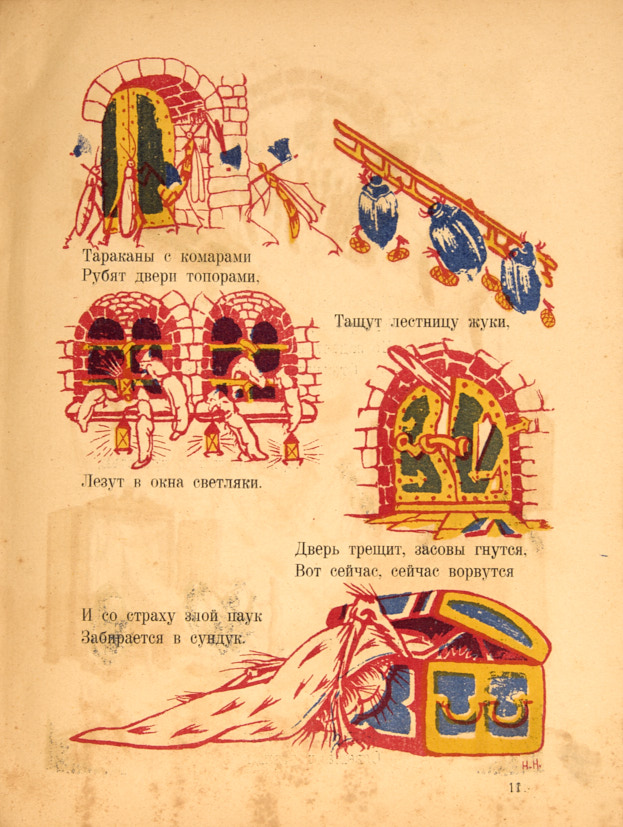 Тараканы с комарами
Рубят двери топорами,
Тащут лестницу жуки,
Лезут в окна светляки.
Дверь трещит, засовы гнутся,
Вот сейчас, сейчас ворвутся
И со страху злой паук
Забирается в сундук.
Н.Н.
11